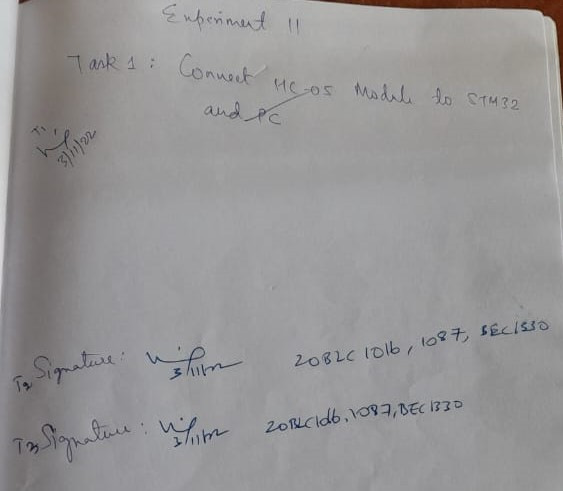 Experiment 11
Task 1: Connect HC-05 Module to STM32
and PC
T1
3/11/22
T2 Signature:
3/11/22 20BLC1016, 1087, BEC1330
T3 Signature:
3/11/22 20BLC1016, 1087, BEC1330